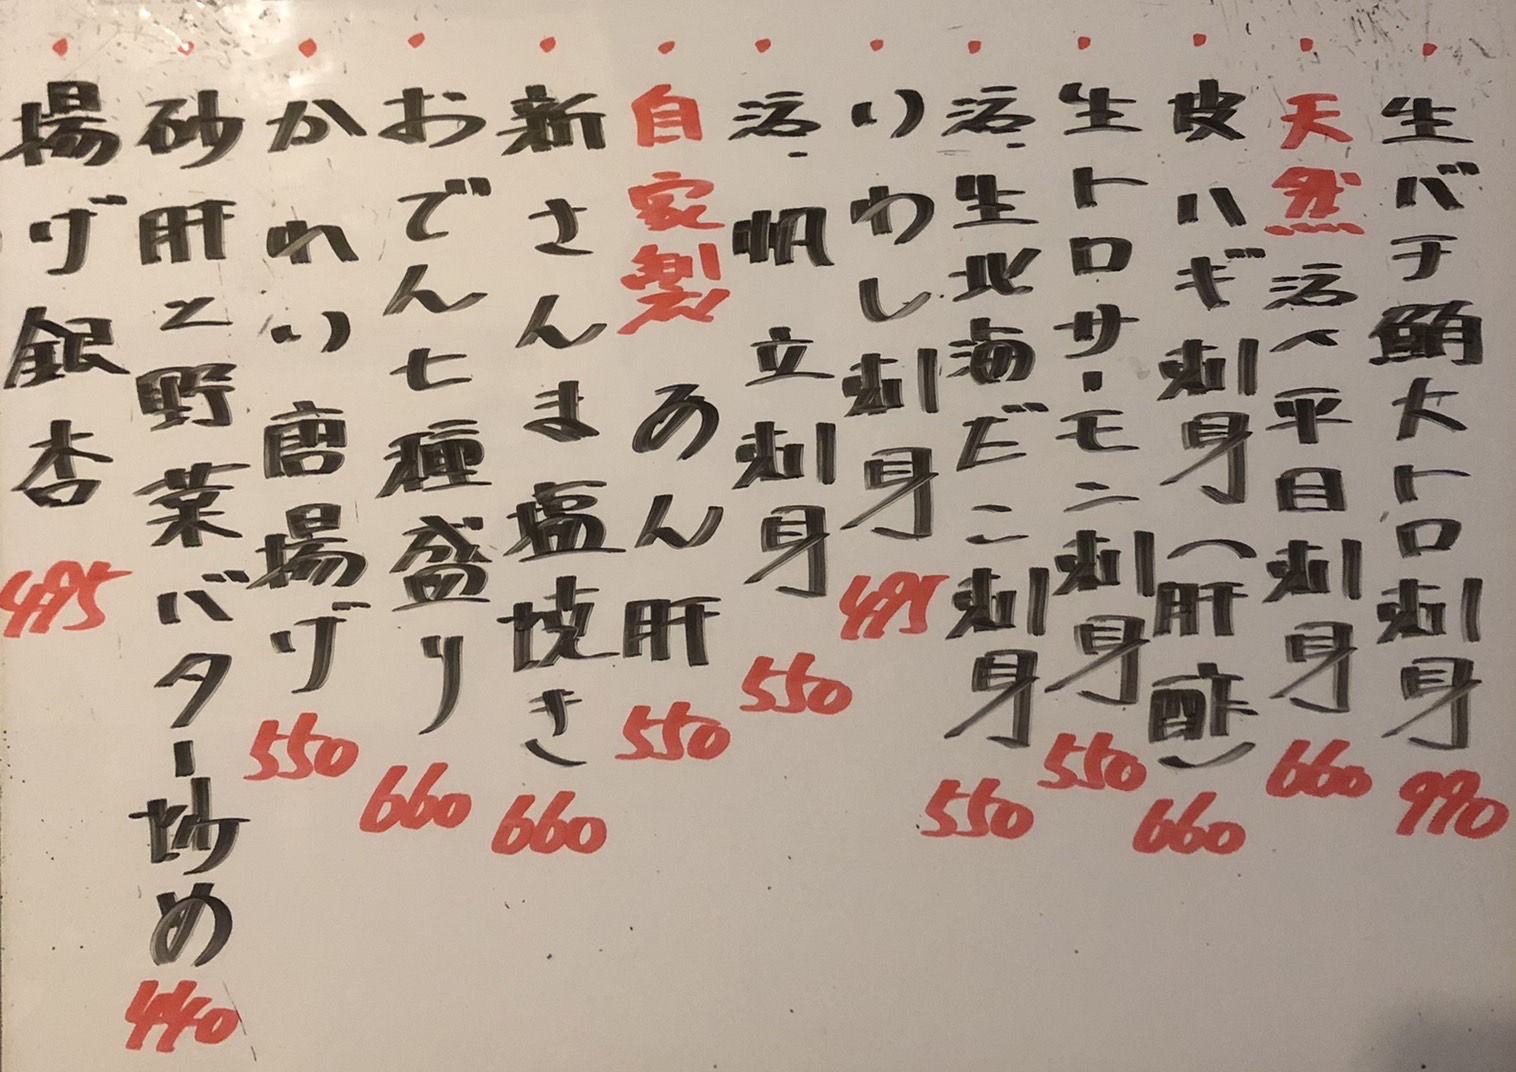 生バチ鮪大トロ刺身 990
天然活〆平目刺身 660
皮ハギ刺身(肝酢) 660
生トロサーモン刺身 550
活〆生北海だこ刺身 550
いわし刺身 495
活〆帆立刺身 550
自家製 あん肝 550
新さんま塩焼き 660
おでん七種盛り 660
かれい唐揚げ 550
砂肝と野菜バター炒め 440
揚げ銀杏 495